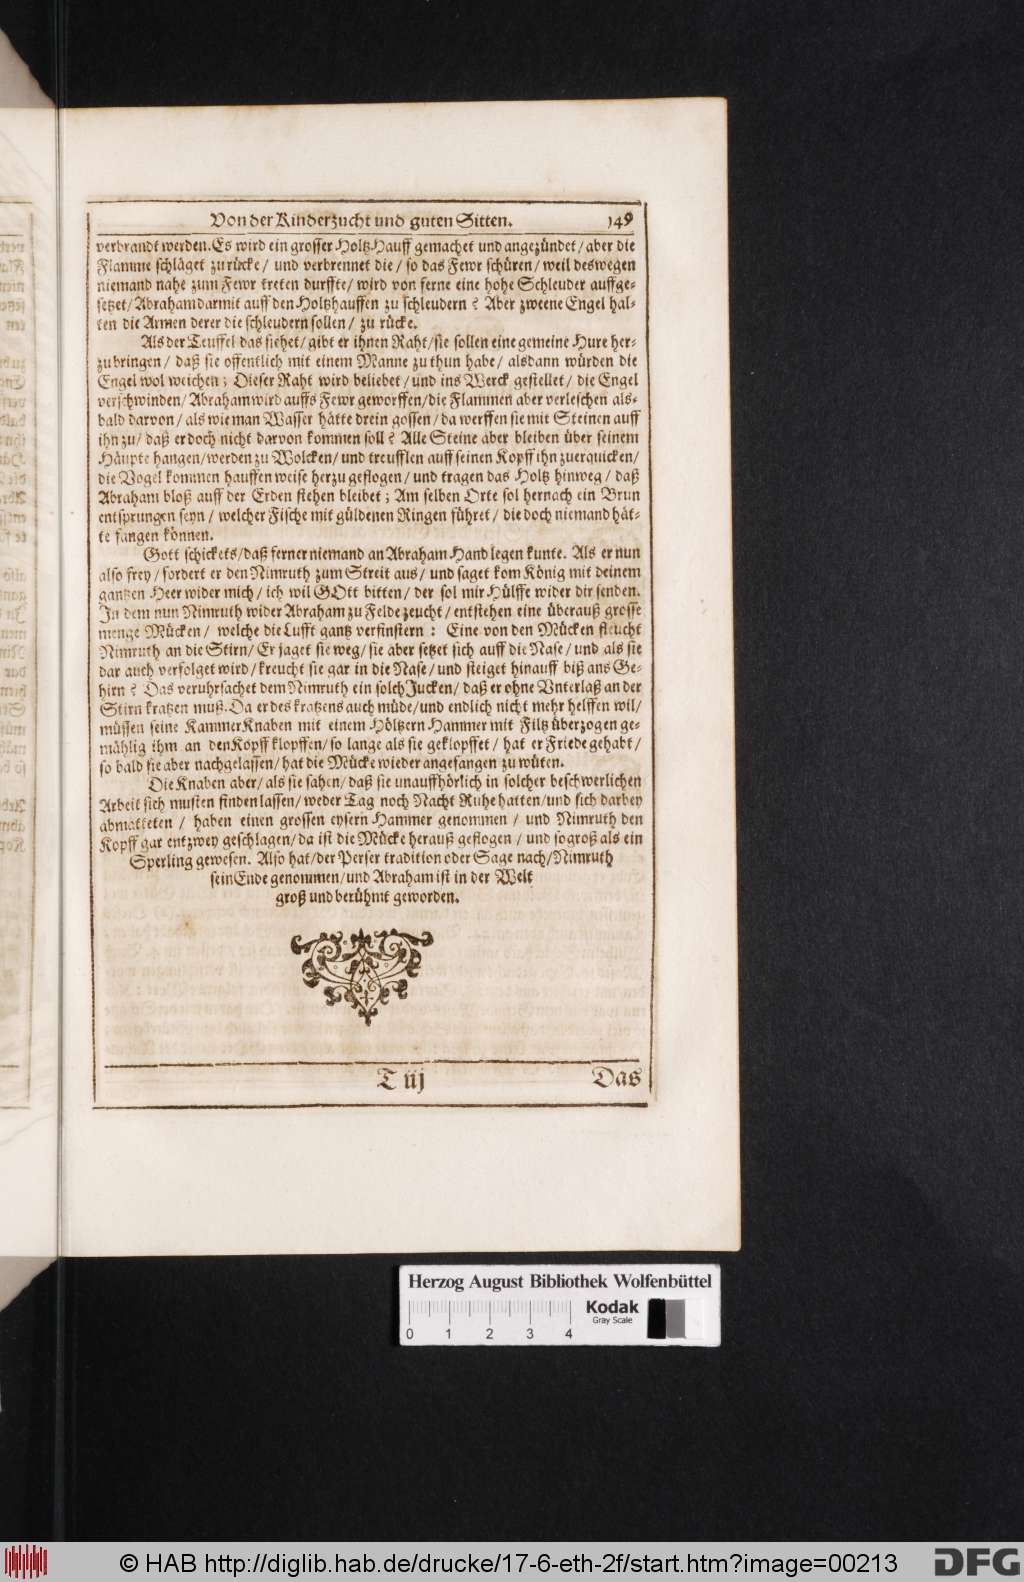 Von der Kinderzucht und guten Sitten. 149
verbrandt werden. Es wird ein grosser Holtz-Hauff gemachet und angezündet / aber die
Flamme schläget zu rücke / und verbrennet die / so das Fewr schüren / weil deswegen
niemand nahe zum Fewr treten durffte / wird von ferne eine hohe Schleuder auffge-
setzet / Abraham darmit auff den Holtzhauffen zu schleudern ? Aber zweene Engel hal-
ten die Armen derer die schleudern sollen / zu rücke.
Als der Teuffel das siehet / gibt er ihnen Raht / sie sollen eine gemeine Hure her-
zubringen / daß sie offentlich mit einem Manne zu thun habe / alsdann würden die
Engel wol weichen ; Dieser Raht wird beliebet / und ins Werck gestellet / die Engel
verschwinden / Abraham wird auffs Fewr geworffen / die Flammen aber verleschen als-
bald darvon / als wie man Wasser hätte drein gossen / da werffen sie mit Steinen auff
ihn zu / daß er doch nicht darvon kommen soll ? Alle Steine aber bleiben über seinem
Häupte hangen / werden zu Wolcken / und treufflen auff seinen Kopff ihn zuerquicken /
die Vögel kommen hauffen weise herzu geflogen / und tragen das Holtz hinweg / daß
Abraham bloß auff der Erden stehen bleibet ; Am selben Orte sol hernach ein Brun
entsprungen seyn / welcher Fische mit güldenen Ringen führet / die doch niemand hät-
te fangen können.
Gott schickets / daß ferner niemand an Abraham Hand legen kunte. Als er nun
also frey / fordert er den Nimruth zum Streit aus / und saget kom König mit deinem
gantzen Heer wider mich / ich wil GOtt bitten / der sol mir Hülffe wider dir senden.
In dem nun Nimruth wider Abraham zu Felde zeucht / entstehen eine überauß grosse
menge Mücken / welche die Lufft gantz verfinstern : Eine von den Mücken fleucht
Nimruth an die Stirn / Er jaget sie weg / sie aber setzet sich auff die Nase / und als sie
dar auch verfolget wird / kreucht sie gar in die Nase / und steiget hinauff biß ans Ge-
hirn ? Das veruhrsachet dem Nimruth ein solch Jucken / daß er ohne Unterlaß an der
Stirn kratzen muß. Da er des kratzens auch müde / und endlich nicht mehr helffen wil /
müssen seine Kammer Knaben mit einem Höltzern Hammer mit Filtz überzogen ge-
mählig ihm an den Kopff klopffen / so lange als sie geklopffet / hat er Friede gehabt /
so bald sie aber nachgelassen / hat die Mücke wieder angefangen zu wüten.
Die Knaben aber / als sie sahen / daß sie unauffhörlich in solcher beschwerlichen
Arbeit sich musten finden lassen / weder Tag noch Nacht Ruhe hatten / und sich darbey
abmatteten / haben einen grossen eysern Hammer genommen / und Nimruth den
Kopff gar entzwey geschlagen / da ist die Mücke herauß geflogen / und so groß als ein
Sperling gewesen. Also hat / der Perser tradition oder Sage nach / Nimruth
sein Ende genommen / und Abraham ist in der Welt
groß und berühmt geworden.
T iij Das
Herzog August Bibliothek Wolfenbüttel
Kodak
Gray Scale
0 1 2 3 4
© HAB http://diglib.hab.de/drucke/17-6-eth-2f/start.htm?image=00213
DFG